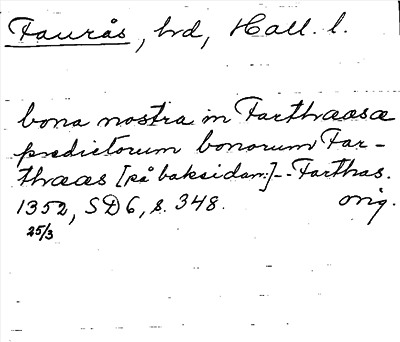 Faurås, hd, Hall. l.
bona nostra in Farthaasæ
predictorum bonorum Far-
thaas [på baksidan:] -- Farthas.
1352, SD6, s. 348. orig.
25/3